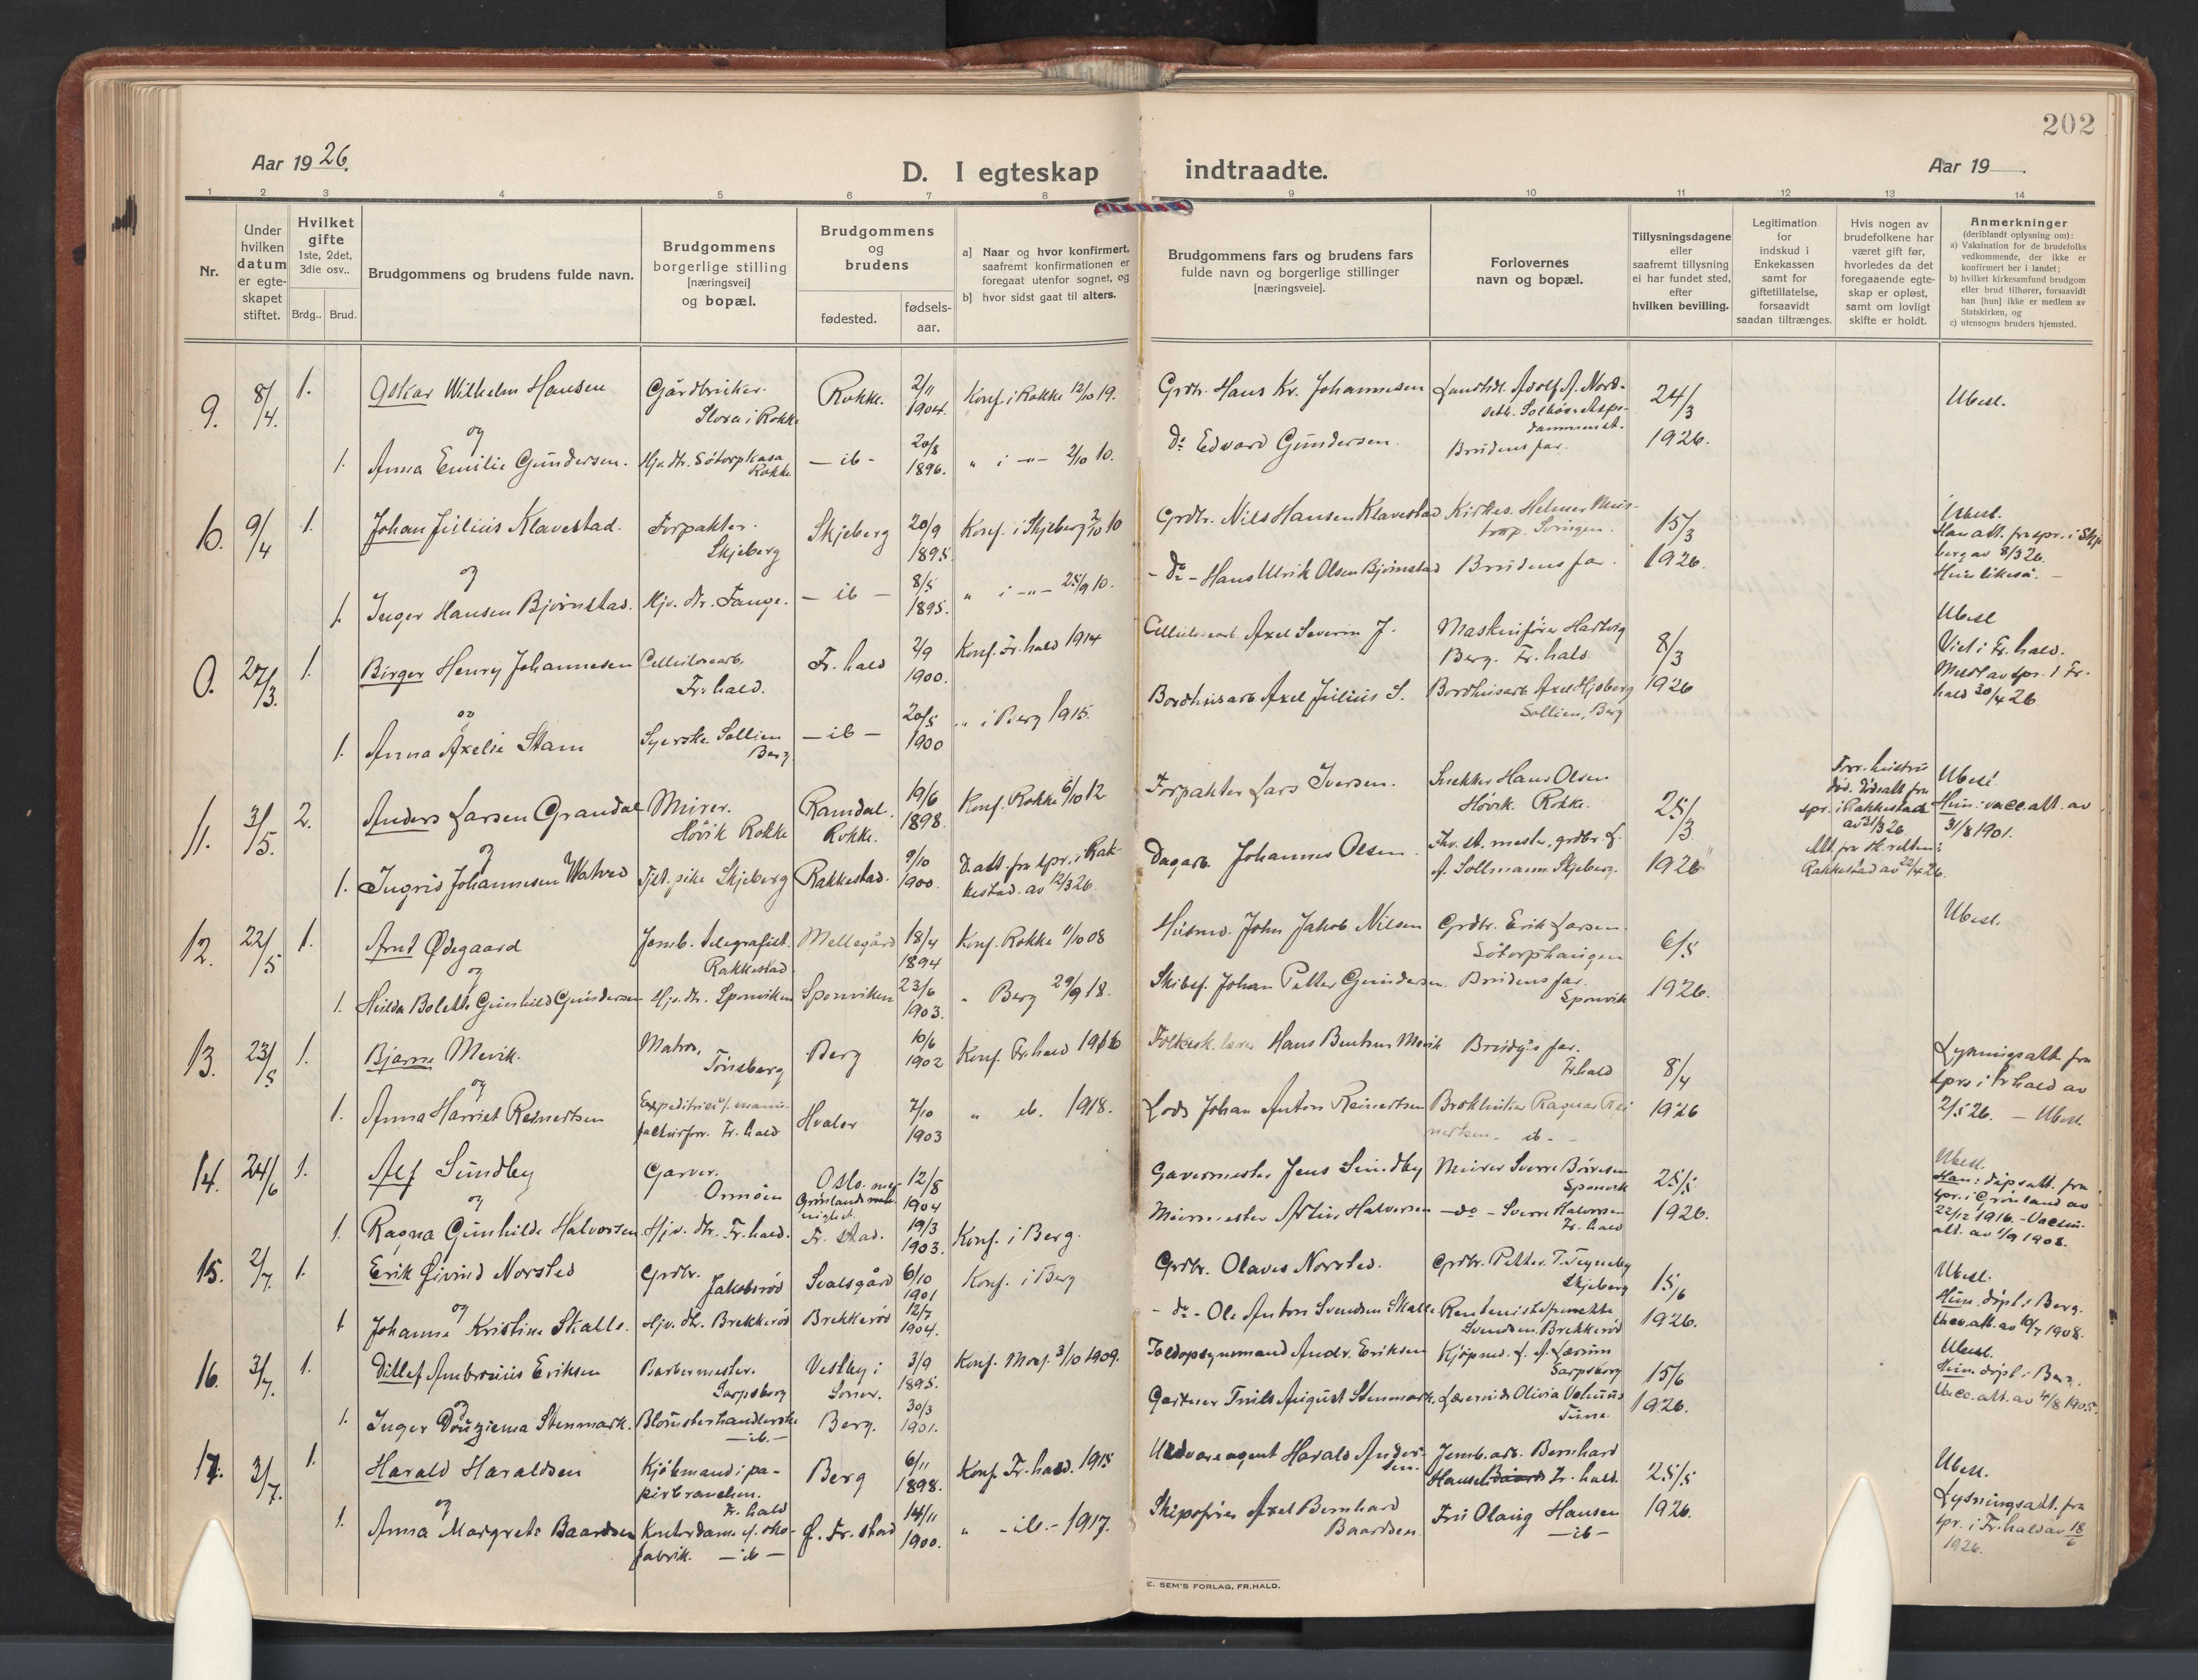 202
Aar 19 26.
D. I egteskap indtraadte.
Aar 19
1 2 3 4 5 6 7 8 9 10 11 12 13 14
Nr.
Under hvilken datum er egte-skapet stiftet.
Hvilket gifte 1ste, 2det, 3die osv..
Brdg.. Brud.
Brudgommens og brudens fulde navn.
Brudgommens borgerlige stilling [næringsvei] og bopæl.
Brudgommens og brudens
fødested. fødsels-aar.
a] Naar og hvor konfirmert, saafremt konfirmationen er foregaat utenfor sognet, og
b] hvor sidst gaat til alters.
Brudgommens fars og brudens fars fulde navn og borgerlige stillinger [næringsveie].
Forlovernes navn og bopæl.
Tillysningsdagene eller saafremt tillysning ei har fundet sted, efter hvilken bevilling.
Legitimation for indskud i Enkekassen samt for giftetillatelse, forsaavidt saadan tiltrænges.
Hvis nogen av brudefolkene har været gift før, hvorledes da det foregaaende egte-skap er opløst, samt om lovligt skifte er holdt.
Anmerkninger (deriblandt oplysning om):
a) Vaksination for de brudefolks vedkommende, der ikke er konfirmert her i landet;
b) hvilket kirkesamfund brudgom eller brud tilhører, forsaavidt han [hun] ikke er medlem av Statskirken, og
c) utensogns bruders hjemsted.
9. 8/4. 1. Oskar Wilhelm Hansen Gårdbruker. Stora i Rokke Rokke. 2/11 1904. Konf. i Rokke 12/10 19. Grdbr. Hans Kr. Johannesen 24/3 Ubesl.
og
1. Anna Emilie Gundersen. Hjv. dtr. Sötorpkasa Rokke — ib - 20/8 1896. " i -"- 2/10 10. Do Edvard Gundersen. Brudens far. 1926.
10. 9/4 1. Johan Julius Klavestad. Forpakter. Skjeberg Skjeberg 20/9 1895. Konf. i Skjeberg 2/10 10 Grdbr. Nils Hansen Klavestad 15/3 Ubesl. Han att. fra spr. i Skjeberg av 8/3 26. Hun likeså. —
og
1. Inger Hansen Bjørnstad. Hjv. dtr. Tange. — ib — 8/5 1895. " i -"- 25/9 10. - do - Hans Ulrik Olsen Bjørnstad Brudens far. 1926.
0. 27/3. 1. Birger Henry Johannesen Cellulosearb. Fr. hald. Fr. hald 2/9 1900. Konf. Fr. hald 1914 Cellulosearb. Axel Severin J. Maskinfører Hartvig Berg. Fr. hald. 8/3 Ubesl Viet i Fr. hald. Meldt av spr. i Fr. hald 30/4 26.
og
1. Anna Axelie Stam Syerske Sollien Berg — ib — 20/5 1900 " i Berg 1915. Bordhusarb Axel Julius S. Bordhusarb Axel Hjoberg Sollien, Berg 1926
11. 3/5. 2. Anders Larsen Grandal Murer. Høvik Rokke Ramdal. Rokke. 19/6 1898. Konf. Rokke 6/10 12 Forpakter Lars Iversen. Snekker Hans Olsen Høvik. Rokke. 25/3 Forr. hustru død. Dødsatt fra spr. i Rakkestad av 31/3 26. Ubesl Hun: vacc. att. av 31/8 1901.
og
1. Ingrid Johannesen Watved Tjst. pike Skjeberg Rakkestad. 9/10 1900. D. att. fra spr. i Rakkestad. av 12/3 26. Dagarb. Johannes Olsen. A. Sollmann Skjeberg. 1926 Att. fra sk. retten i Rakkestad av 22/4 26.
12. 22/5 1. Arnt Ødegaard Jernb. telegrafist. Rakkestad. Mellegård 18/4 1894 Konf. Rokke 11/10 08 Husmd. John Jakob Nilsen Grdbr. Erik Larsen Sötorphaugen 6/5 Ubesl.
og
1. Hilda Bolette Gunhild Gundersen Hjv. dtr. Sponviken Sponviken 23/6 1903. " Berg 29/9 18. Skibsf. Johan Petter Gundersen. Brudens far. Sponvik 1926.
13. 23/5 1. Bjarne Mevik. Matros, Tønsberg Berg 10/6 1902 Konf. Fr. hald 1916 Folkesk. lærer Hans Benthus Mevik Brudg.s far. Fr. hald 8/4 Lysningsatt fra spr. i Fr hald av 2/5 26. — Ubesl.
og
1. Anna Harriet Reinertsen Expeditrice i manufakturforr. Fr. hald Hvaler 7/10 1903 " ib. 1918. Lods Johan Anton Reinertsen Ragnar Reinertsen. ib - 1926
14. 24/6 1. Alf Sundby Garver. Ormøen Oslo. Grønlands menighet. 12/8 1904 Garvermester Jens Sundby Murer Sverre Børresen Sponvik 25/5 Ubesl. Han: dåpsatt. fra spr. i Grønland av 22/12 1916. - Vaccin. att. av 1/9 1908.
og
1. Ragna Gunhilde Halvorsen. Hjv. dtr. Fr. hald. Fr. stad. 19/3 1903. Konf. i Berg. Murmester Artur Halvorsen — do - Sverre Halvorsen Fr. hald 1926.
15. 2/7 1. Erik Øivind Norsted Grdbr. Jakobsrød Svalsgård 6/10 1901 Konf. i Berg Grdbr. Olaves Norsted. Grdbr. Petter T. Tegneby Skjeberg 15/6 Ubesl. Hun. døpt i Berg. Vacc. att. av 10/7 1908.
og
1 Johanne Kristine Skalle. Hjv. dtr. Brekkerød Brekkerød 12/7 1904. - do - Ole Anton Svendsen Skalle Svendsen. Brekkerød 1926.
16. 3/7. 1. Ditlef Ambrosius Eriksen Barbermester. Sarpsborg Vestby i Soner. 3/9 1895. Konf. Moss. 3/10 1909. Toldopsynsmand Andr. Eriksen Kjøpmd. L. A. Larsen Sarpsborg 15/6 Ubesl. Hun døpt i Berg. Vacc. att. av 4/8 1905.
og
1. Inger Douziema Stenmark. Blomsterhandlerske — ib. — Berg. 30/3 1901. Gartner Truls August Stenmark. Tune. 1926.
17. 3/7. 1. Harald Haraldsen Kjøbmand i papirbranchen. Fr. hald Berg 6/11 1898. Konf. Fr. hald. 1915 Uldvareagent Harald Andersen. Jernb. arb. Bernhard Hansen Fr. hald. 25/5 Ubesl. Lysningsatt. fra spr. i Fr. hald av 18/6 1926.
og
1. Anna Margrete Baardsen Kontordame v. skofabrik. — ib — G. Fr. stad 14/11 1900. " - ib. - 1917. Skipsfører Axel Bernhard Baardsen. Fru Olaug Hansen — ib — 1926.
E. SEM'S FORLAG, FR.HALD.